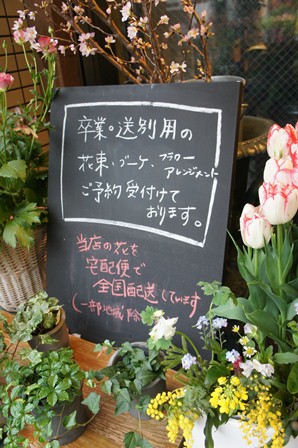 卒業。送別用の
花束、ブーケ、フラワーアレンジメント
ご予約受付けて
おります。
当店の花を
宅配便で
全国配送しています
(一部地域除